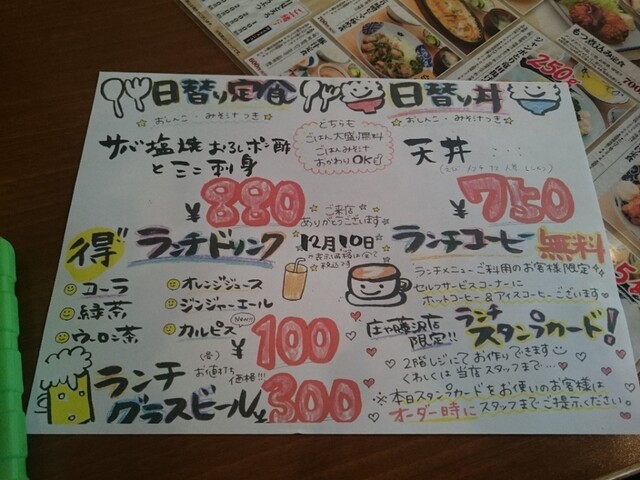 日替り定食
☆おしんこ・みそ汁つき☆
サバ塩焼おろしポン酢
とミニ刺身
¥880
どちらも
ごはん大盛り無料
ごはんみそ汁
おかわりOK
日替り丼
☆おしんこ・みそ汁つき☆
天丼
¥750
ご来店
ありがとうございます
12月10日
※表示価格は全て
税込です
得 ランチドリンク
コーラ
緑茶
ウーロン茶
オレンジジュース
ジンジャーエール
カルピス
New!!
(各) ¥100
お値打ち
価格!!!
ランチ
グラスビール ¥300
ランチコーヒー無料
ランチメニューご利用のお客様限定
セルフサービスコーナーに
ホットコーヒー&アイスコーヒーございます
庄や藤沢店
限定!!
ランチ
スタンプカード!
2階レジにてお作りできます
くわしくは当店スタッフまで…
※本日スタンプカードをお使いのお客様は
オーダー時にスタッフまでご提示ください。
250